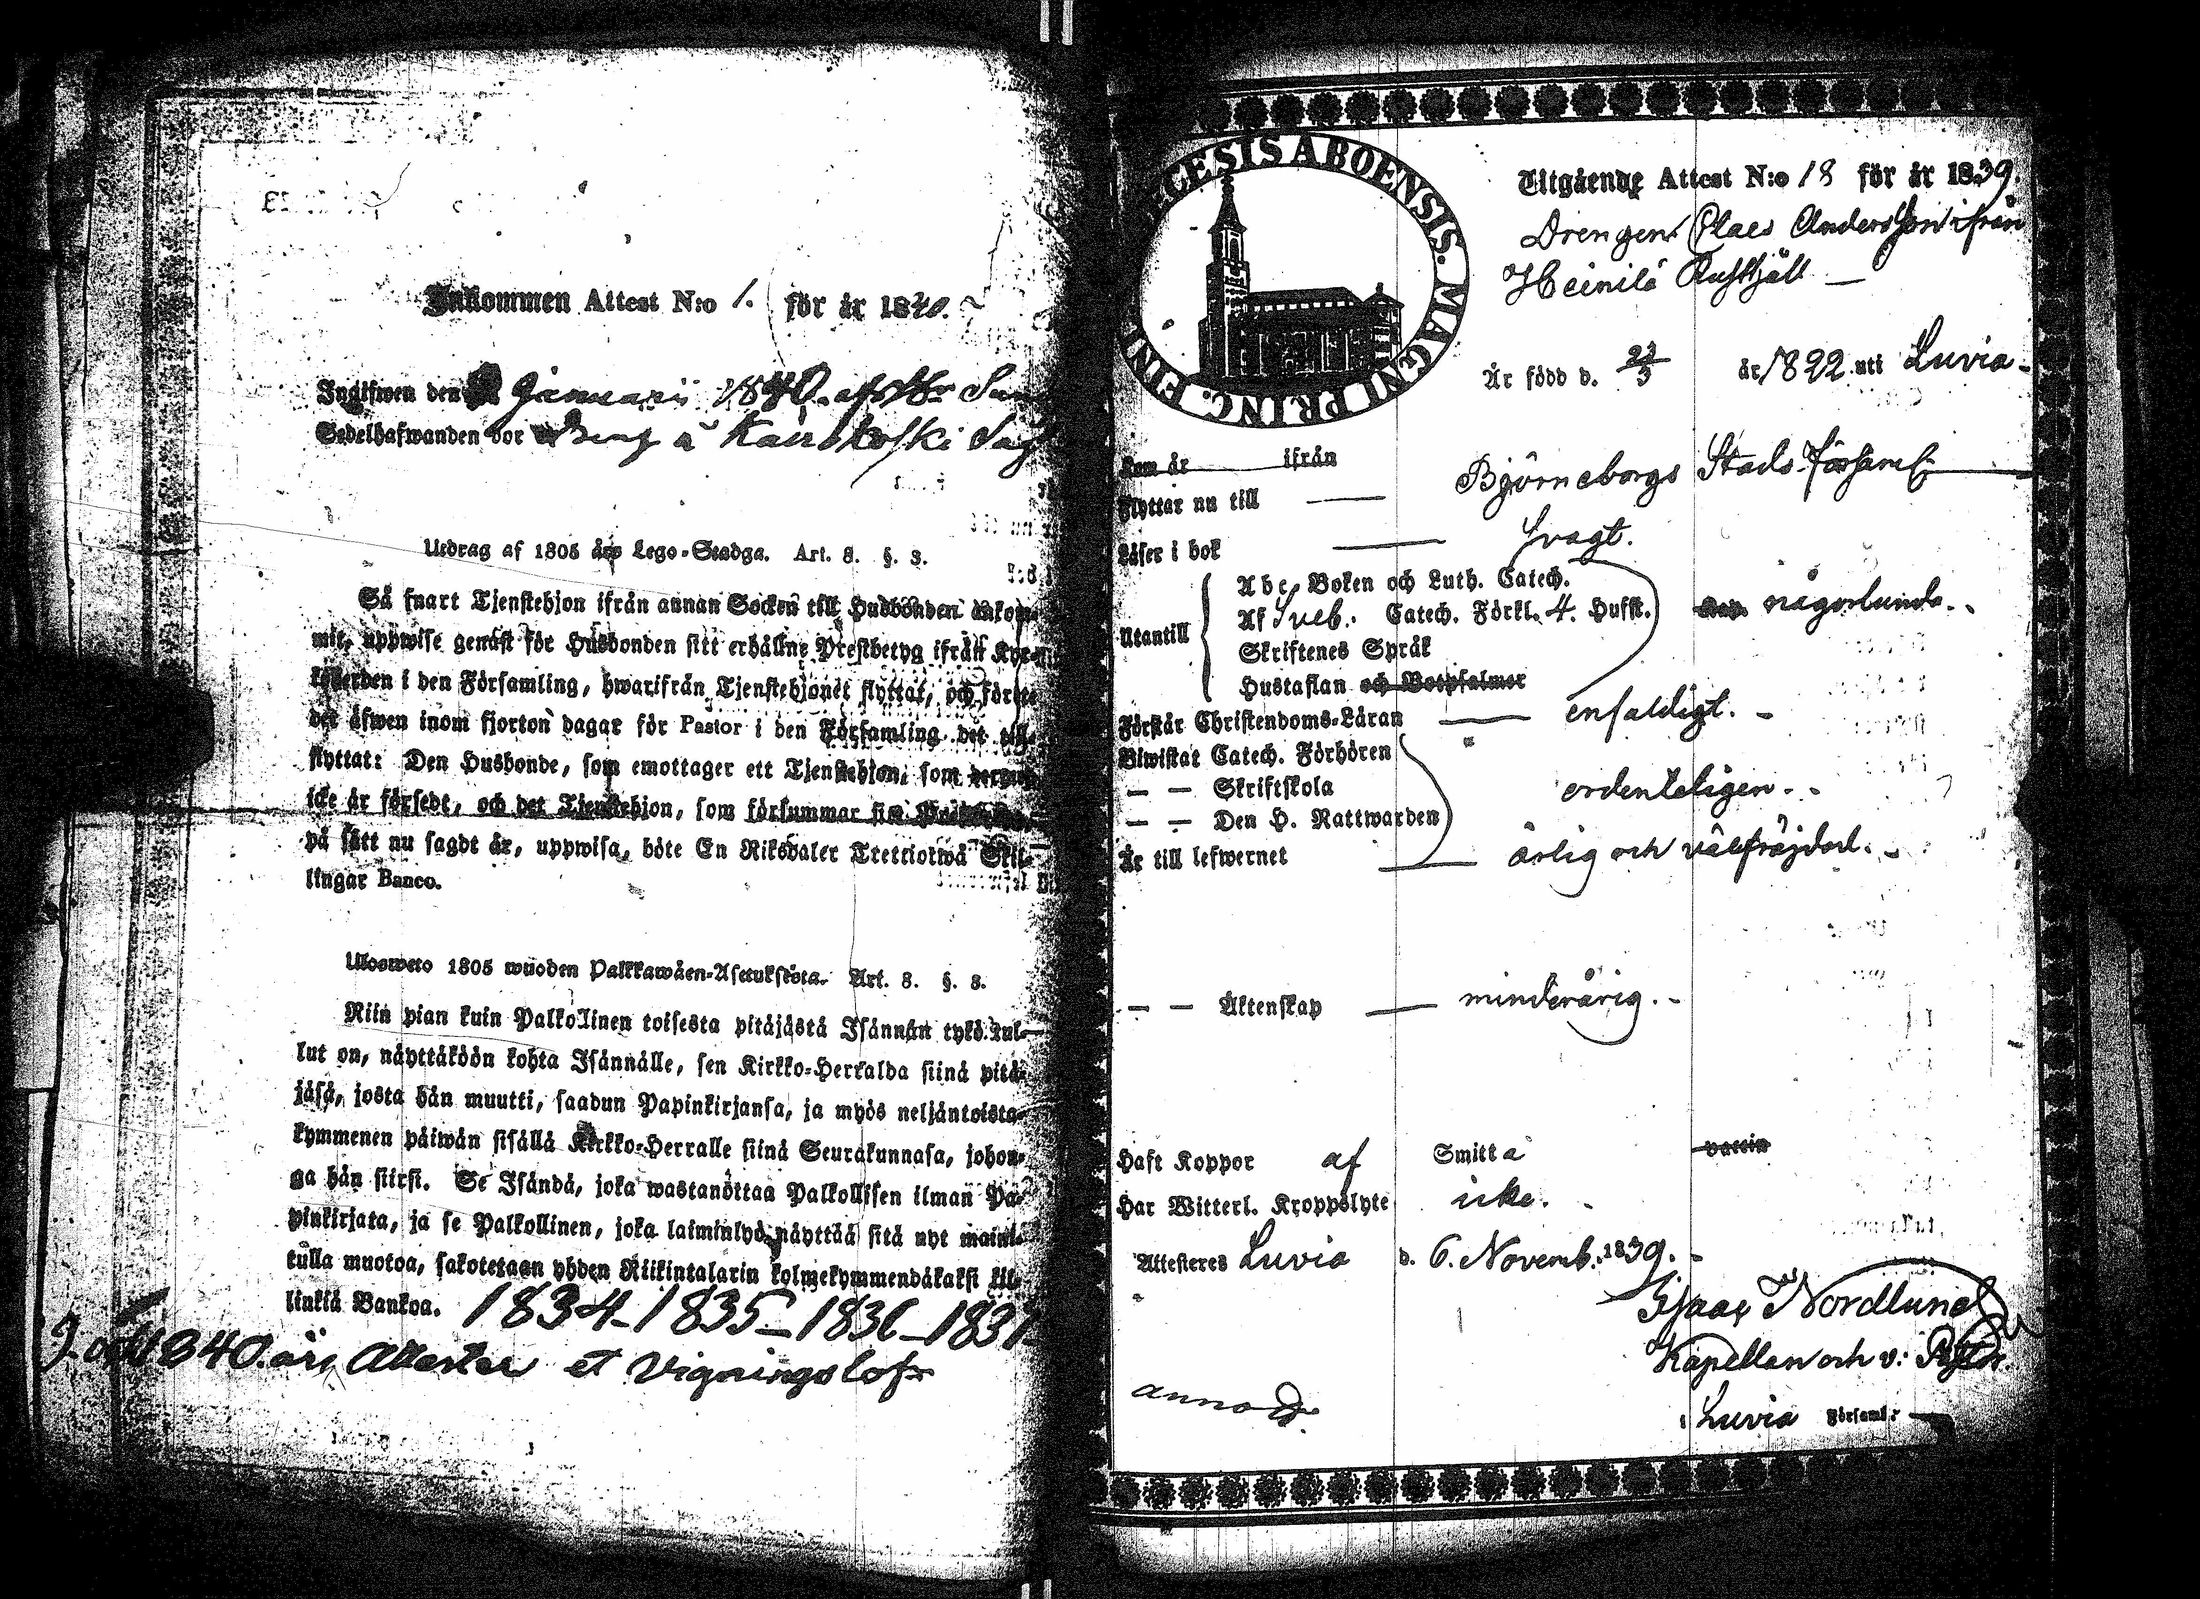 Inkommen Attest N:o 1. för år 1840.
Ingifwen den Januarii 1840. af
Sedelhafwanden bor å Kairokoski
Utdrag af 1805 års Lego-Stadga. Art. 8. §. 3.
Så snart Tjenstehjon ifrån annan Socken till Husbonden ankom-
mit, uppwise genast för Husbonden sitt erhållne Prestbetyg ifrån Kyr-
koherden i den Församling, hwarifrån Tjenstehjonet flyttat, och förete
det äfwen inom fjorton dagar för Pastor i den Församling det till-
flyttat: Den Husbonde, som emottager ett Tjenstehjon, som
icke är försedt, och det Tjenstehjon, som försummar sitt
på sätt nu sagdt är, uppwisa, böte En Riksdaler Trettiotwå Skil-
lingar Banco.
Ulosweto 1805 wuoden Palkkawäen-Asetuksesta. Art. 8. §. 3.
Niin pian kuin Palkolinen toisesta pitäjästä Isännän tykö tul-
lut on, näyttäköön kohta Isännälle, sen Kirkko-Herralda siinä pitä-
jäsä, josta hän muutti, saadun Papinkirjansa, ja myös neljäntoista-
kymmenen päiwän sisällä Kirkko-Herralle siinä Seurakunnasa, johon-
ga hän siirsi. Se Isändä, joka wastanottaa Palkollisen ilman Pa-
pinkirjata, ja se Palkollinen, joka laiminlyö näyttää sitä nyt mainit-
tulla muotoa, sakotetaan yhden Riikintalarin kolmekymmendäkaksi kil-
linkiä Bankoa.
1834-1835-1836-1837-
1840. års Attester et Vigningslof
DIOECESIS ABOENSIS. MAGNI PRINC. FINL.
Utgående Attest N:o 18 för år 1839.
Drengen Claes Andersson ifrån
Heinilä Rusthåll
Är född d. 23/3 år 1822 uti Luvia
Kom år ifrån
Flyttar nu till Björneborgs Stads Församl
Läser i bok svagt.
Utantill
Abc-Boken och Luth. Catech.
Af Sveb. Catech. Förkl. 4. Hufst. någorlunda.
Skriftenes Språk
Hustaflan och Botpsalmer
Förstår Christendoms-Läran enfaldigt.
Biwistat Catech. Förhören
— — Skriftskola ordenteligen.
— — Den H. Nattwarden
Är till lefwernet ärlig och välfräjdad.
— — Äktenskap minderårig.
Haft Koppor af Smitta vaccin
Har Witterl. Kroppslyte icke.
Attesteres Luvia d. 6. Novemb. 1839.
Isaac Nordlund
Kapellan och v. Pastor
i Luvia Församl:r